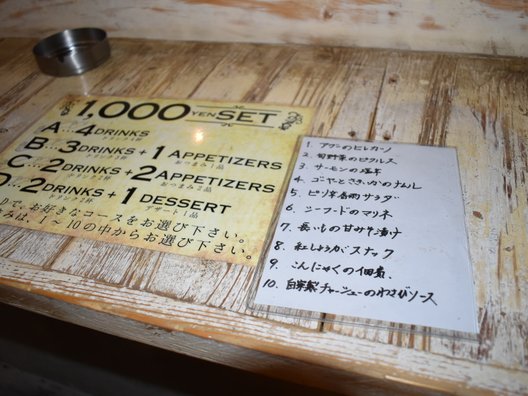 1,000 YEN SET
A…4 DRINKS
ドリンク4杯
B…3 DRINKS + 1 APPETIZERS
ドリンク3杯 おつまみ1品
C…2 DRINKS + 2 APPETIZERS
ドリンク2杯 おつまみ2品
D…2 DRINKS + 1 DESSERT
ドリンク2杯 デザート1品
で、お好きなコースをお選び下さい。
みは、1〜10の中からお選び下さい。
1. アグーの
2. 旬野菜のピクルス
3. サーモンの塩辛
4. ゴーヤとさきいかのナムル
5. サラダ
6. シーフードのマリネ
7. 長いもの甘みそ漬け
8. 紅しょうがスナック
9. こんにゃくの佃煮
10. 自家製チャーシューのわさびソース